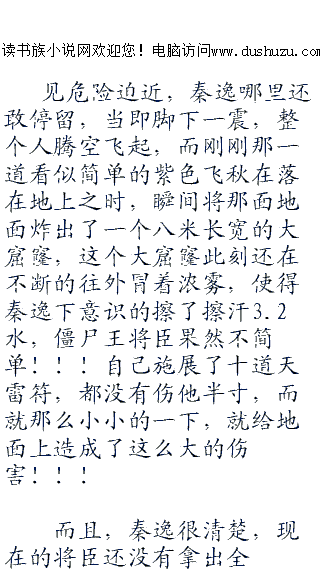 读书族小说网欢迎您！电脑访问www.dushuzu.com
见危险迫近，秦逸哪里还
敢停留，当即脚下一震，整
个人腾空飞起，而刚刚那一
道看似简单的紫色飞秋在落
在地上之时，瞬间将那面地
面炸出了一个八米长宽的大
窟窿，这个大窟窿此刻还在
不断的往外冒着浓雾，使得
秦逸下意识的擦了擦汗3.2
水，僵尸王将臣果然不简
单！！！自己施展了十道天
雷符，都没有伤他半寸，而
就那么小小的一下，就给地
面上造成了这么大的伤
害！！！
而且，秦逸很清楚，现
在的将臣还没有拿出全